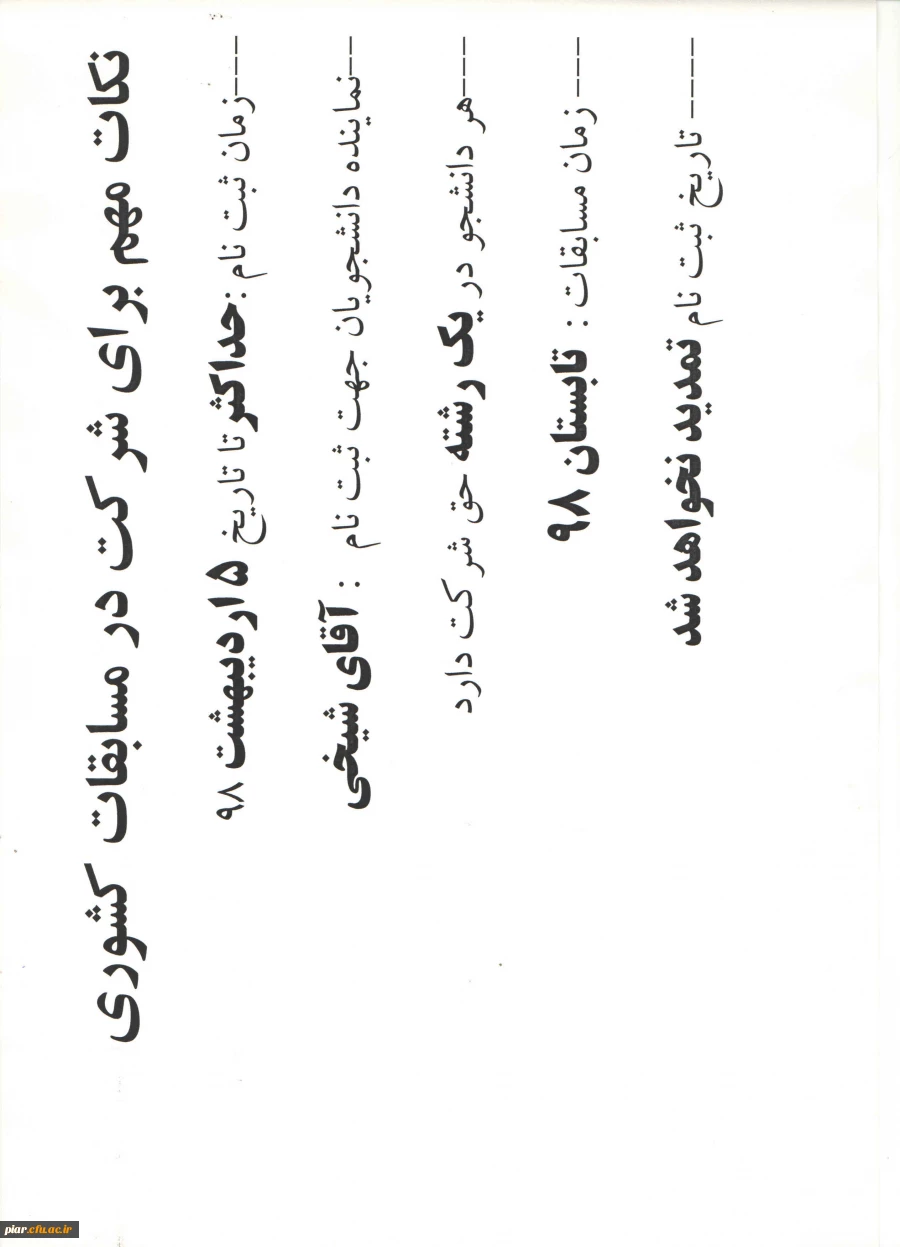 نکات مهم برای شرکت در مسابقات کشوری
----زمان ثبت نام :حداکثر تا تاریخ ۵ اردیبهشت ۹۸
---نماینده دانشجویان جهت ثبت نام : آقای شیخی
----هر دانشجو در یک رشته حق شرکت دارد
---- زمان مسابقات : تابستان ۹۸
----- تاریخ ثبت نام تمدید نخواهد شد
piar.cfu.ac.ir